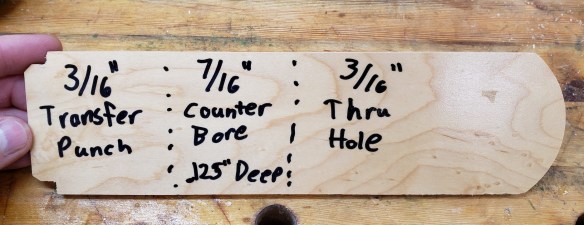 3/16"
Transfer
Punch
7/16"
Counter
Bore
.125" Deep
3/16"
Thru
Hole